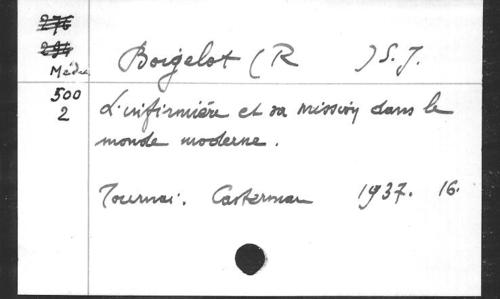 276
294
Médec
Boigelot (R ) S.J.
500
2
L'infirmière et sa mission dans le
monde moderne.
Tournai. Casterman 1937. 16.